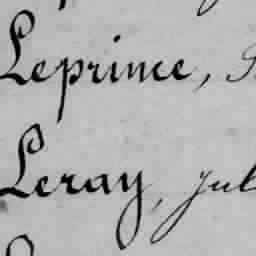 Leprince,
Leray, Jul